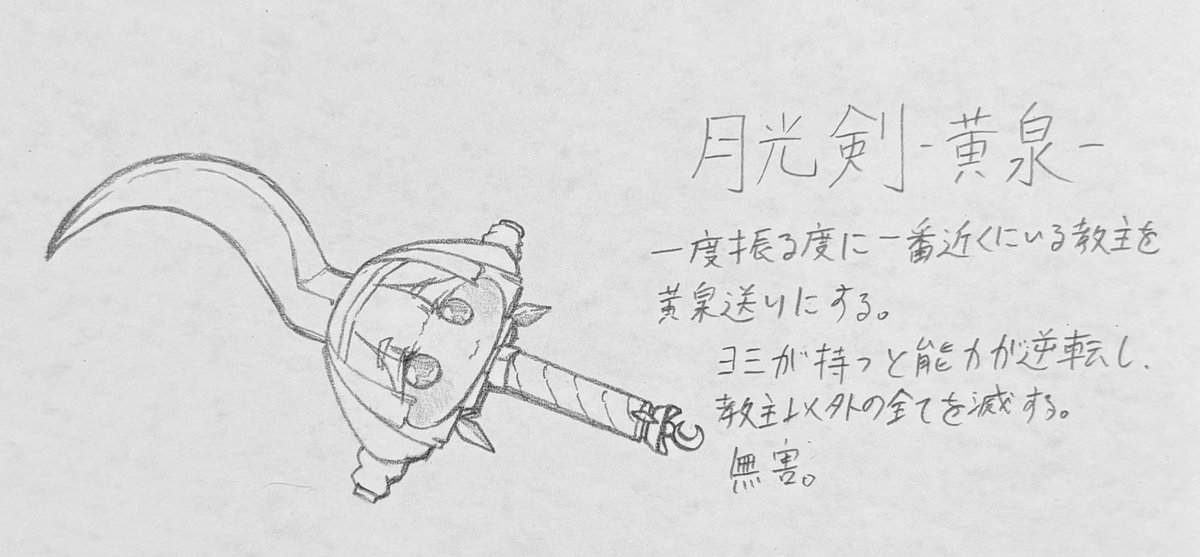 月光剣-黄泉-
一度振る度に一番近くにいる教主を
黄泉送りにする。
ヨミが持つと能力が逆転し、
教主以外の全てを滅する。
無害。